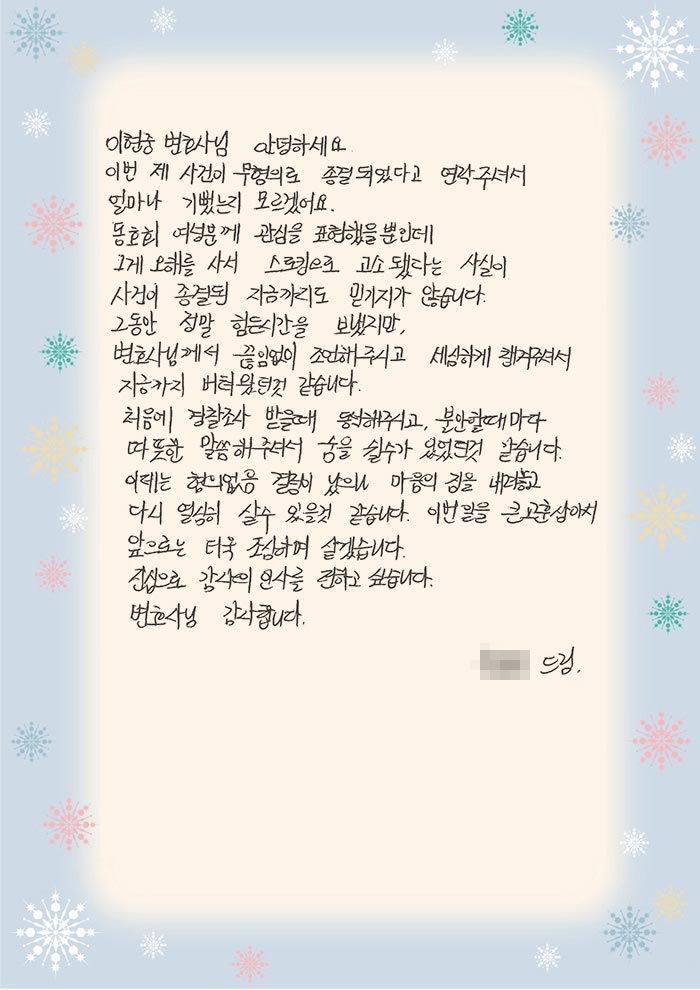 이현중 변호사님 안녕하세요.
이번 제 사건이 무혐의로 종결되었다고 연락주셔서
얼마나 기뻤는지 모르겠어요.
동호회 여성분께 관심을 표현했을뿐인데
그게 오해를 사서 스토킹으로 고소 됐다는 사실이
사건이 종결된 지금까지도 믿기지가 않습니다.
그동안 정말 힘든시간을 보냈지만,
변호사님께서 끊임없이 조언해주시고 세심하게 챙겨주셔서
지금까지 버텨왔던것 같습니다.
처음에 경찰조사 받을때 동행해주시고, 불안할때마다
따뜻한 말씀해주셔서 숨을 쉴수가 있었던것 같습니다.
이제는 혐의없음 결정이 났으니 마음의 짐을 내려놓고
다시 열심히 살수 있을것 같습니다. 이번일을 큰교훈삼아서
앞으로는 더욱 조심하며 살겠습니다.
진심으로 감사의 인사를 전하고 싶습니다.
변호사님 감사합니다.
드림.